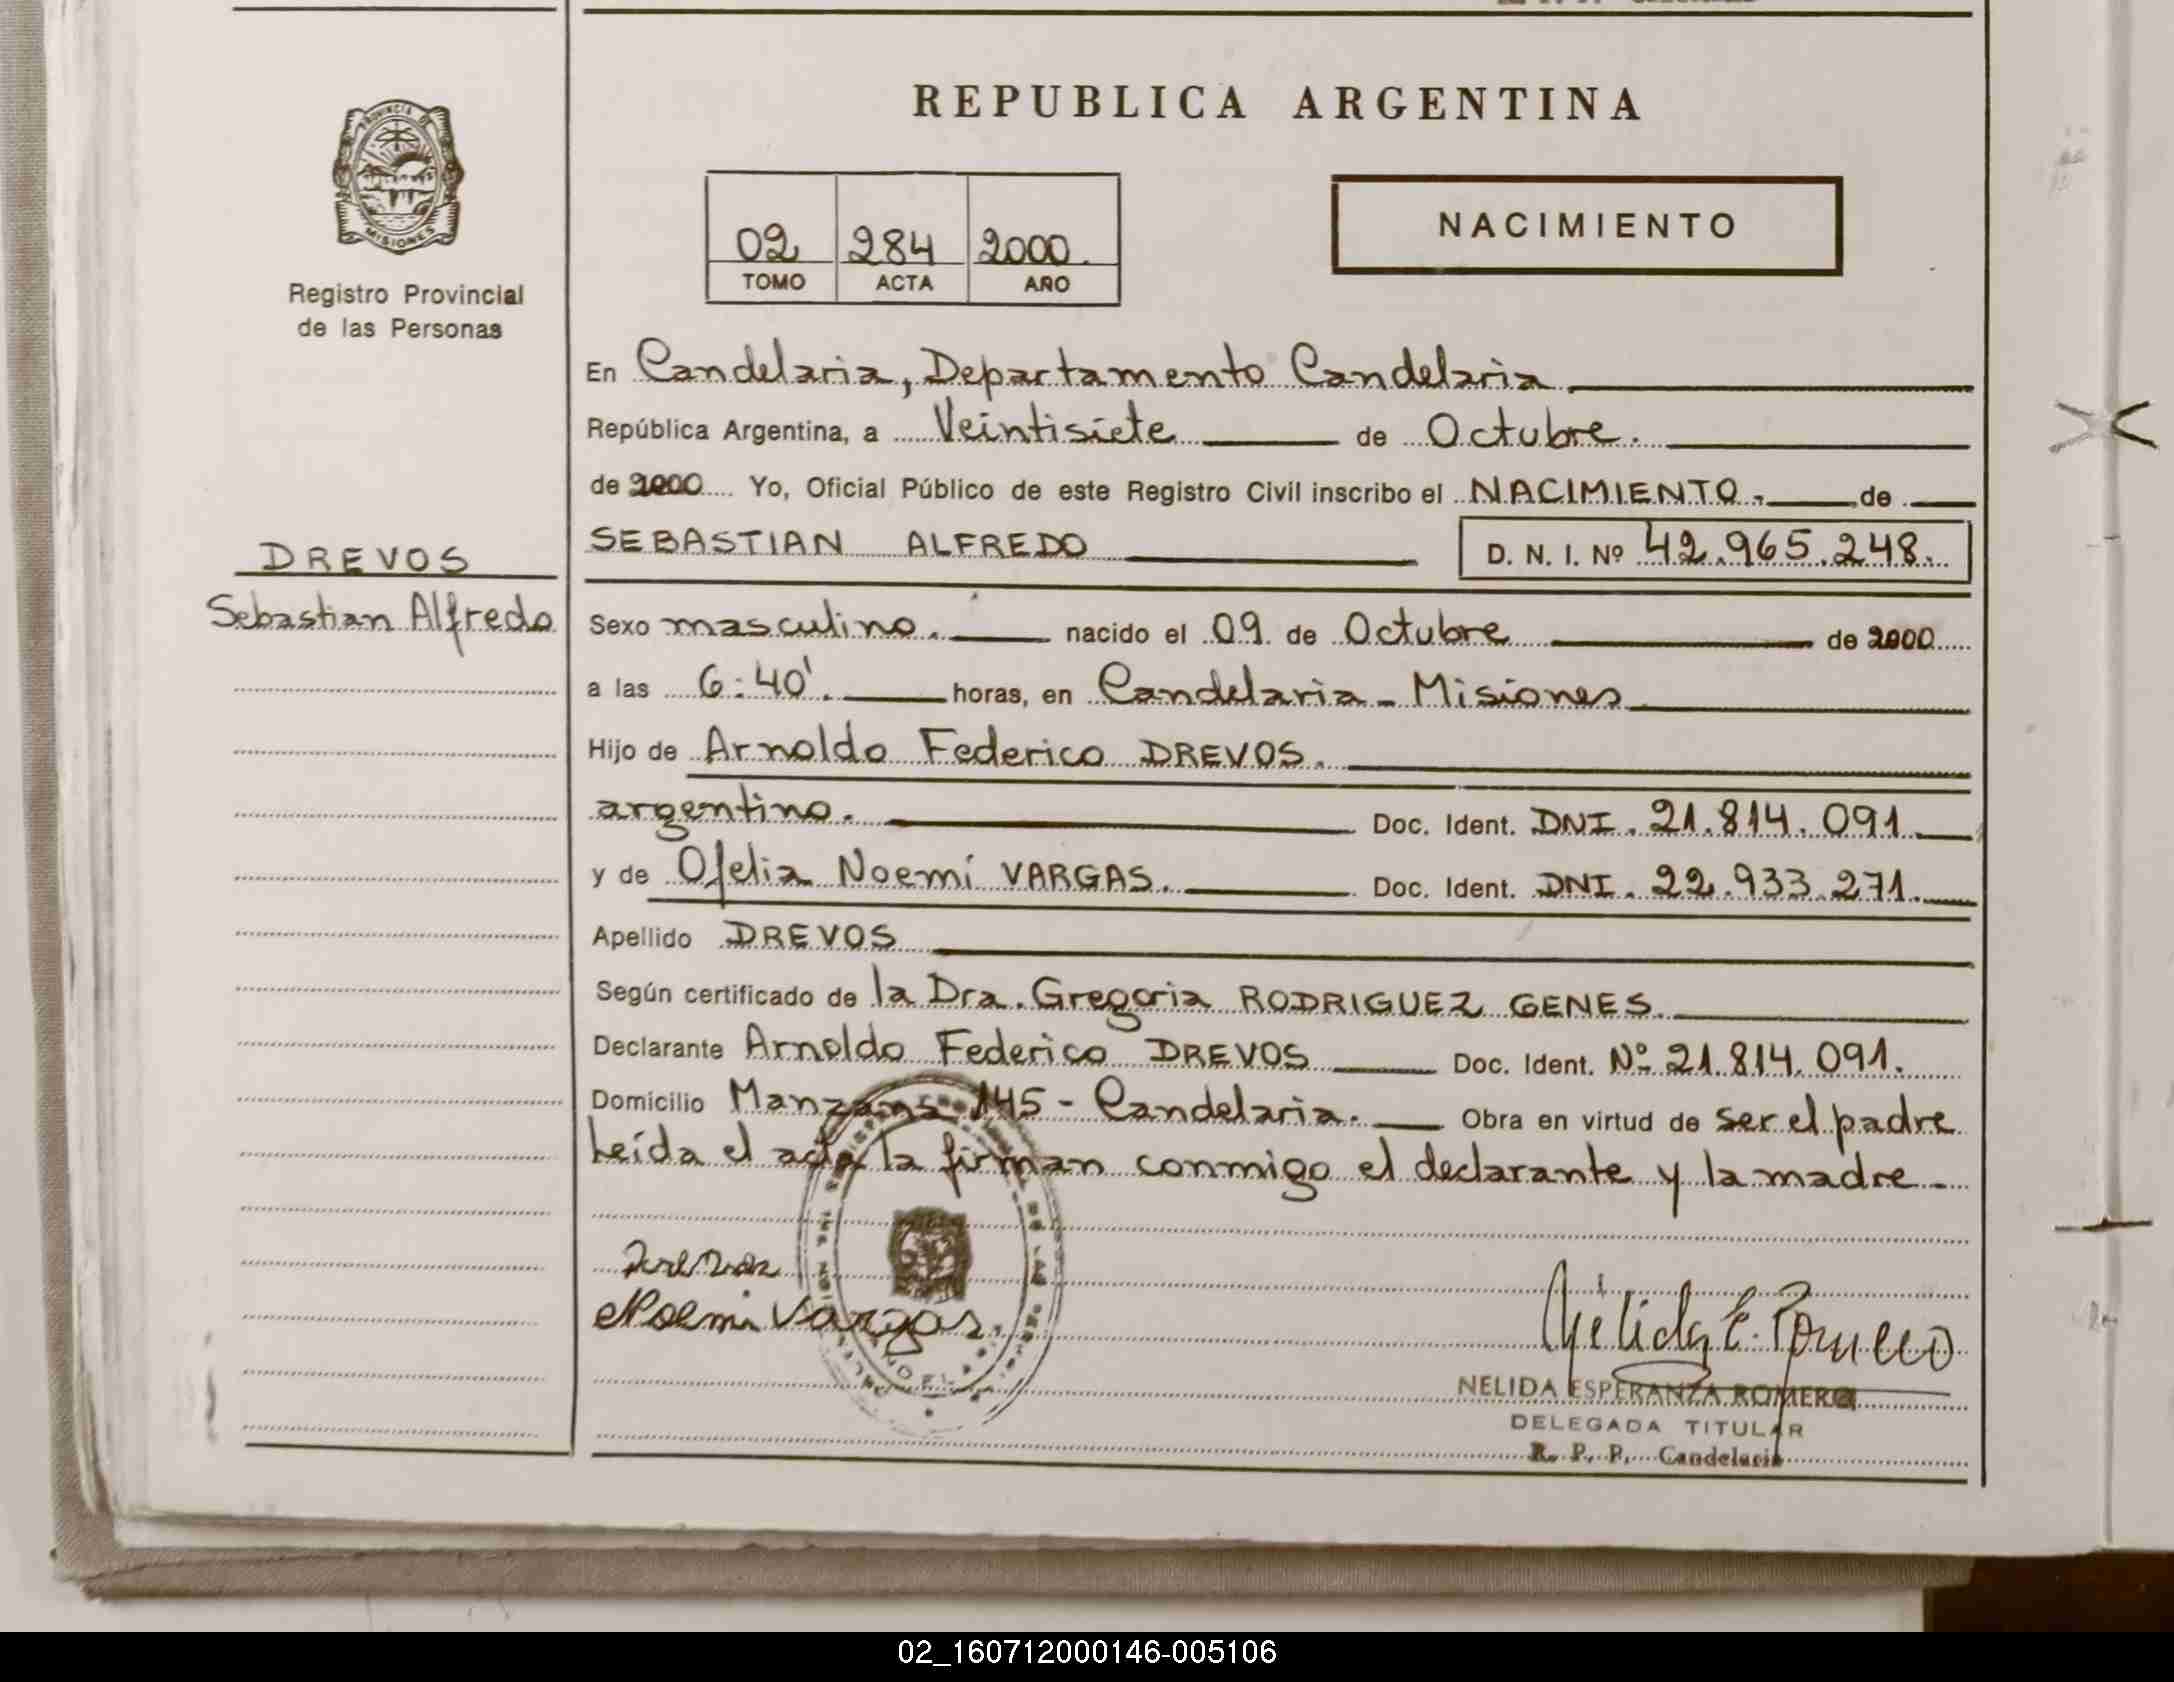 REPUBLICA ARGENTINA
PROVINCIA DE
MISIONES
Registro Provincial
de las Personas
02 284 2000.
TOMO ACTA AÑO
NACIMIENTO
En Candelaria, Departamento Candelaria
República Argentina, a Veintisiete de Octubre.
de 2000 Yo, Oficial Público de este Registro Civil inscribo el NACIMIENTO.- de
SEBASTIAN ALFREDO D. N. I. Nº 42.965.248.
DREVOS
Sebastian Alfredo
Sexo masculino. nacido el 09 de Octubre de 2000
a las 6:40'. horas, en Candelaria - Misiones
Hijo de Arnoldo Federico DREVOS.
argentino. Doc. Ident. DNI. 21.814.091.
y de Ofelia Noemí VARGAS. Doc. Ident. DNI. 22.933.271.
Apellido DREVOS
Según certificado de la Dra. Gregoria RODRIGUEZ GENES.
Declarante Arnoldo Federico DREVOS Doc. Ident. Nº 21.814.091.
Domicilio Manzana 145 - Candelaria. Obra en virtud de ser el padre
Leída el acta la firman conmigo el declarante y la madre.
Noemi Vargas.
Nélida E. Romero
NELIDA ESPERANZA ROMERO
DELEGADA TITULAR
R. P. P. Candelaria
02_160712000146-005106